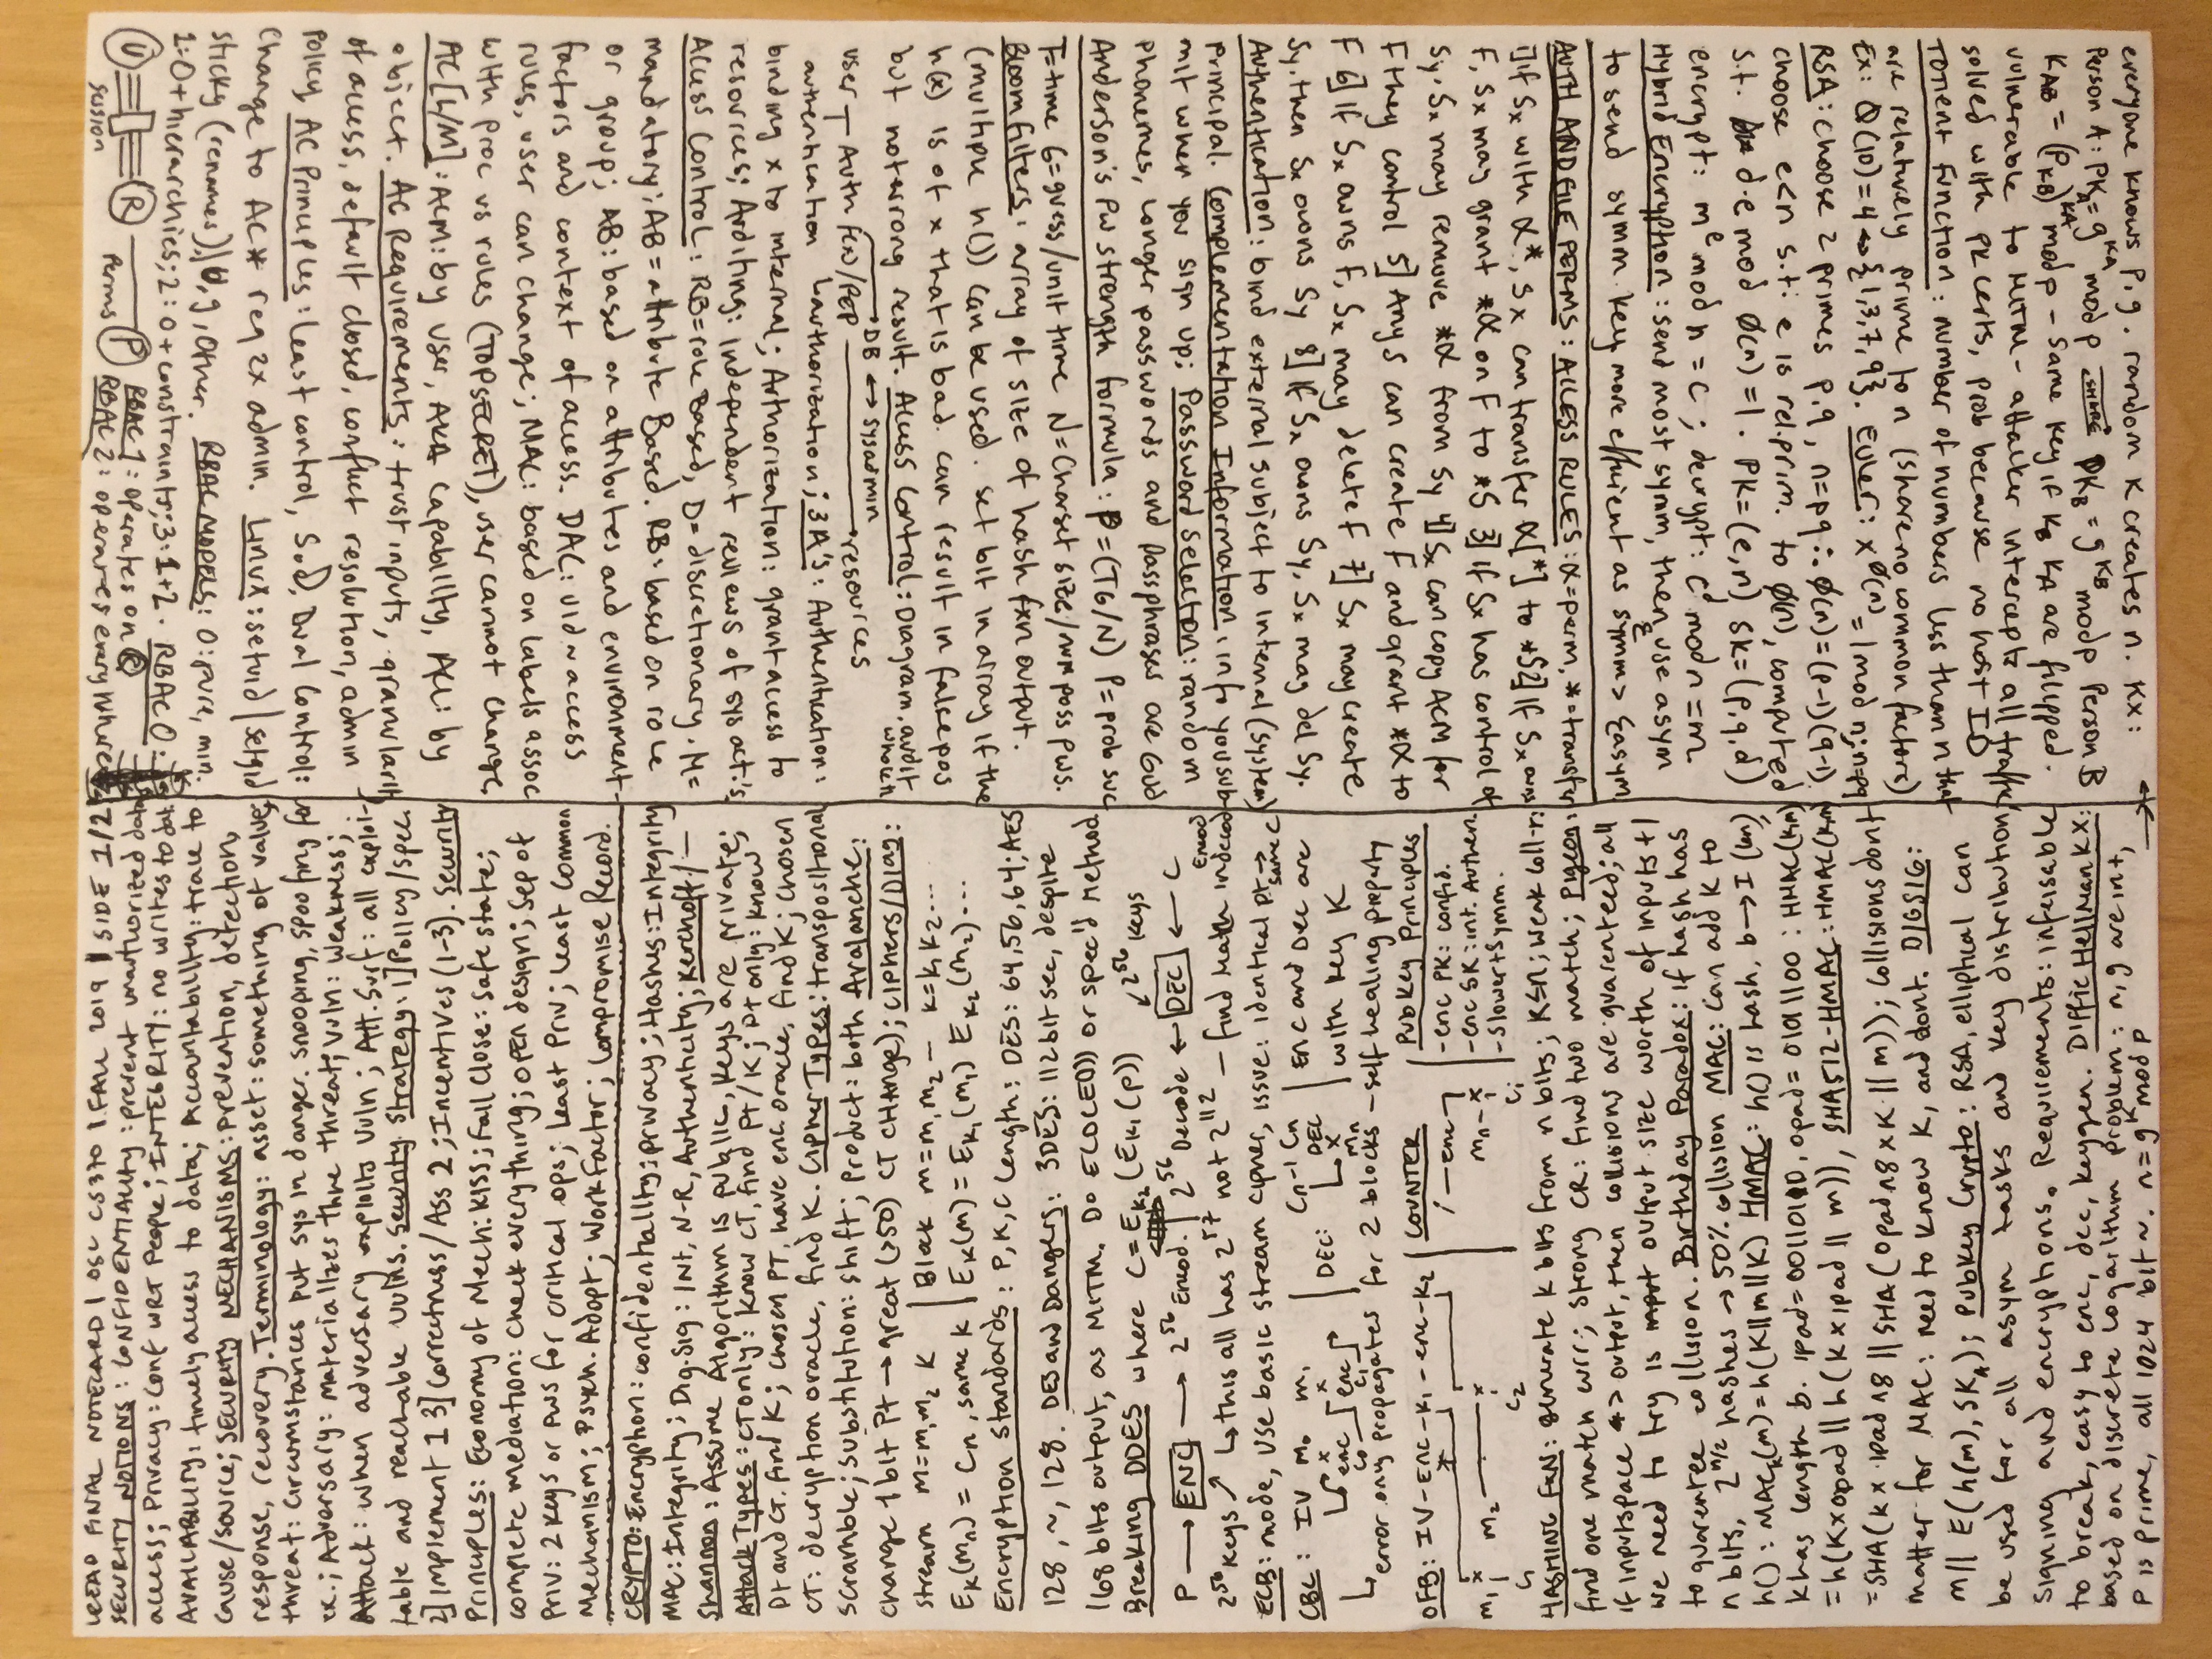 FINAL NOTECARD | OSU CS370 | FALL 2019 | SIDE 1/2
SECURITY NOTIONS: CONFIDENTIALITY: prevent unauthorized data
access; Privacy: Conf WRT People; INTEGRITY: no writes to dat.
AVAILABILITY: timely access to data; Accountability: trace to
cause/source; SECURITY MECHANISMS: prevention, detection,
response, recovery. Terminology: asset: something of value;
threat: circumstances put sys in danger. snooping, spoofing for
ex.; Adversary: materializes threat; Vuln: weakness;
Attack: when adversary exploits vuln; Att. Surf: all exploi-
table and reachable vulns. Security Strategy: 1] Policy/Spec.
2] Implement 1 3] Correctness/Ass 2; Incentives (1-3). Security
Principles: Economy of Mech: KISS; Fail Close: safe state;
complete mediation: check everything; open design; Sep of
Priv: 2 keys or pws for critical ops; Least Priv; Least Common
Mechanism; Psych. Adopt; Work Factor; Compromise Record.
CRYPTO: Encryption: confidentiality; privacy; Hashes: Integrity
MAC: Integrity; Dig. Sig: INT, N-R, Authenticity; Kerchoff/—
Shannon: Assume Algorithm is public, keys are private;
Attack Types: CT only: know CT, find PT/K; Pt only: know
Pt and CT, find K; chosen PT, have enc oracle, find K; chosen
CT: decryption oracle, find K. Cipher Types: transpositional
scramble; substitution: shift; product: both Avalanche:
change 1 bit Pt → great (>50) CT CHange); Ciphers/Diag:
stream m=m₁m₂ K | Block m=m₁m₂ — K=k₁k₂...
Eₖ(mₙ) = Cₙ, same k | Eₖ(m) = Eₖ₁(m₁) Eₖ₂(m₂)...
Encryption Standards: P, K, C Length: DES: 64, 56, 64; AES
128, ~, 128. DES and Dangers: 3DES: 112 bit sec, despite
168 bits output, as MITM. Do E(D(E())) or spec'd method
Breaking DDES where C = Eₖ₂(Eₖ₁(p)) ↙ 2⁵⁶ keys
P → ENC → 2⁵⁶ Encod. | 2⁵⁶ Decode ← DEC ← C
2⁵⁶ keys ↗ ↳ this all has 2⁵⁷ not 2¹¹² — find match in decod Encod
ECB: mode, use basic stream cipher, issue: identical pt → same C
CBC: IV m₀ m₁ | DEC: Cₙ₋₁ Cₙ | Enc and Dec are
enc enc DEC x mₙ | with key K
C₀ C₁
↳ error only propagates for 2 blocks — self healing property
OFB: IV - enc - k₁ - enc - k₂ | COUNTER | Pubkey Principles
i — enc | - enc PK: confid.
m₁ x m₂ — x | mₙ - x | - enc SK: int. Authen.
C₁ C₂ Cᵢ | - Slower + Symm.
HASHING FXN: generate k bits from n bits; K≤n; weak coll-r:
find one match curr; strong CR: find two match; Pigeon:
if inputspace > output, then collisions are guarenteed; all
we need to try is output size worth of inputs +1
to guarentee collision. Birthday Paradox: if hash has
n bits, 2^(n/2) hashes → 50% collision MAC: Can add K to
h(): MACₖ(m) = h(K||m||K) HMAC: h() is hash, b → I (len),
k has length b. ipad = 00110110, opad = 01011100: HMAC(k,m)
= h(K x opad || h(k x ipad || m)), SHA512-HMAC: HMAC(k,m)
= SHA(k x ipad n8 || SHA(opad n8 x K || m)); Collisions dont
matter for MAC: need to know K, and dont. DIGSIG:
m || E(h(m), SKₐ); Pubkey Crypto: RSA, elliptical can
be used for all asym tasks and key distribution,
signing and encryptions. Requirements: infeisable
to break, easy to enc, dec, keygen. Diffie Hellman KX:
based on discrete logarithm problem: n, g are int,
P is prime, all 1024 bit ~. n = gᵏ mod P
everyone knows P, g. random K creates n. KX:
Person A: PKₐ = g^Kₐ mod p share PK_B = g^K_B mod p Person B
K_AB = (P_KB)^KA mod p - same key if K_B Kₐ are flipped.
vulnerable to MITM - attacker intercepts all traffic,
solved with PK certs, prob because no host ID
TOTIENT Function: number of numbers less than n that
are relatively prime to n (share no common factors)
Ex: Ø(10) = 4 → {1,3,7,9}. Euler: x^Ø(n) = 1 mod n; n=pq
RSA: choose 2 primes p, q, n=pq ∴ Ø(n) = (p-1)(q-1)
choose e<n s.t. e is rel. prim. to Ø(n), computed
s.t. d·e mod Ø(n) = 1. PK=(e,n) SK=(p,q,d)
encrypt: mᵉ mod n = c; decrypt: cᵈ mod n = m
Hybrid Encryption: send most symm, then use asym
to send symm key. more efficient as symm > Easym
AUTH AND FILE PERMS: ACCESS RULES: α=perm, *=transfer
1] if Sx with α*, Sx can transfer α[*] to *S 2] If Sx owns
F, Sx may grant *α on F to *S 3] if Sx has control of
Sy, Sx may remove *α from Sy 4] Sx can copy ACM for
F they control 5] Any S can create F and grant *α to
F 6] If Sx owns F, Sx may delete F 7] Sx may create
Sy, then Sx owns Sy 8] If Sx owns Sy, Sx may del Sy.
Authentication: bind external subject to internal (system)
Principal. Complementation Information: info you sub-
mit when you sign up; Password Selection: random
Phonemes, Longer passwords and passphrases are good
Anderson's Pw strength formula: P=(TG/N) P=prob suc
T=time G=guess/unit time N=charset size/num poss pws.
Bloom filters: array of size of hash fxn output.
(multiple h()) can be used. set bit in array if the
h(x) is of x that is bad. can result in false pos
but not wrong result. Access Control: Diagram, audit whole
DB ↔ sysadmin
user — Auth F(x)/PEP — resources
authentication authorization; 3A's: Authentication:
binding x to internal; Authorization: grant access to
resources; Auditing: independent reviews of sys act's;
Access Control: RB=role based, D=discretionary. M=
mandatory; AB=attribute Based. RB: based on role
or group; AB: based on attributes and environment
factors and context of access. DAC: UID ~ access
rules, user can change; MAC: based on labels assoc
with proc vs rules (TOPSECRET), user cannot change
AC[L/M]: ACM: by user, AKA capability, ACL: by
object. AC Requirements: trust inputs, granularity
of access, default closed, conflict resolution, admin
policy, AC Principles: Least control, SoD, Dual Control:
Change to AC* req 2x admin. Linux: setuid/setgid
sticky (renames), U, g, Other. RBAC MODELS: 0: pure, min.
1: 0+hierarchies; 2: 0+constraints; 3: 1+2. RBAC 0:
RBAC 1: operates on R
U R Perms P
session RBAC 2: operates everywhere